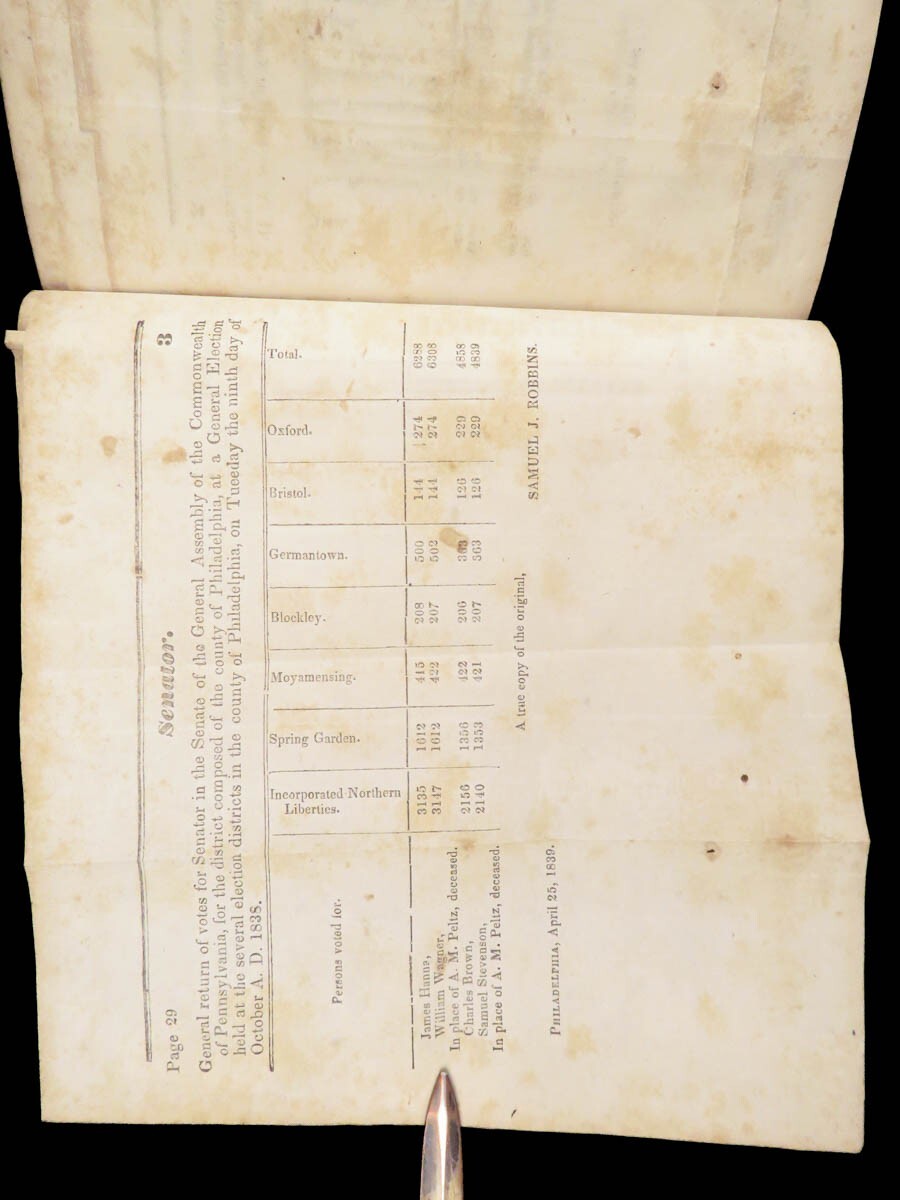 Page 29 3
Senator.
General return of votes for Senator in the Senate of the General Assembly of the Commonwealth
of Pennsylvania, for the district composed of the county of Philadelphia, at a General Election
held at the several election districts in the county of Philadelphia, on Tueeday the ninth day of
October A. D. 1838.
Persons voted for. Incorporated Northern Liberties. Spring Garden. Moyamensing. Blockley. Germantown. Bristol. Oxford. Total.
James Hanna, 3135 1612 415 208 500 144 274 6288
William Wagner, 3147 1612 422 207 502 144 274 6308
In place of A. M. Peltz, deceased.
Charles Brown, 2156 1356 422 206 363 126 229 4858
Samuel Stevenson, 2140 1353 421 207 363 126 229 4839
In place of A. M. Peltz, deceased.
A true copy of the original,
SAMUEL J. ROBBINS.
PHILADELPHIA, April 25, 1839.